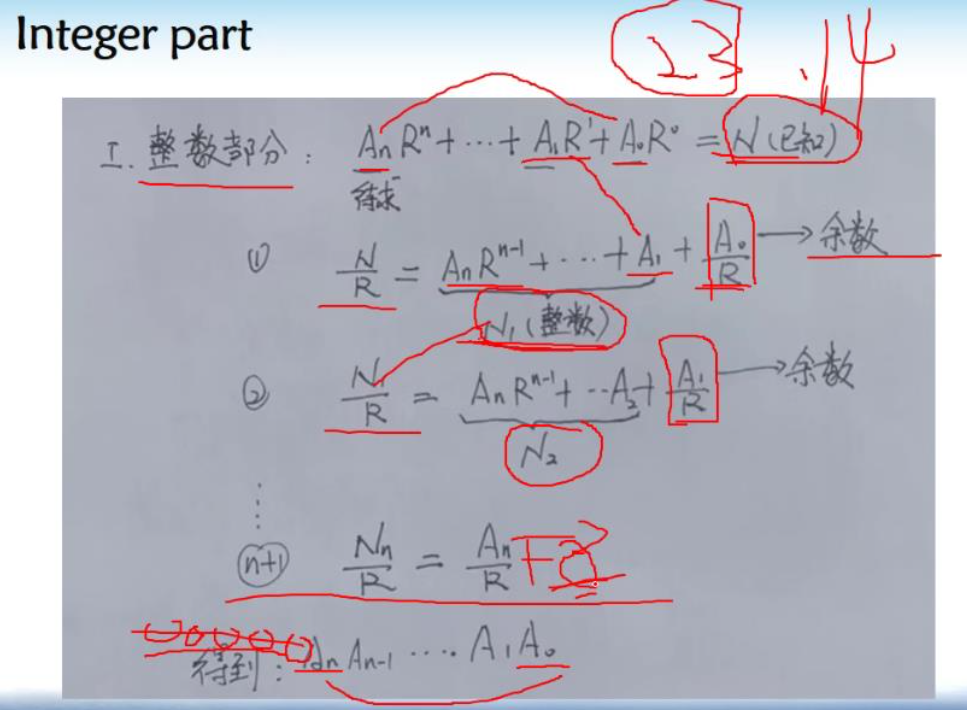 Integer part
23 .14
I. 整数部分: AₙRⁿ+⋯+A₁R¹+A₀R⁰ = N(已知)
待求
① N/R = AₙRⁿ⁻¹+⋯+A₁ + A₀/R → 余数
N₁(整数)
② N₁/R = AₙRⁿ⁻¹+⋯A₂+ A₁/R → 余数
N₂
⋮
(n+1) Nₙ/R = Aₙ/R
得到: Aₙ Aₙ₋₁ ⋯⋅ A₁A₀